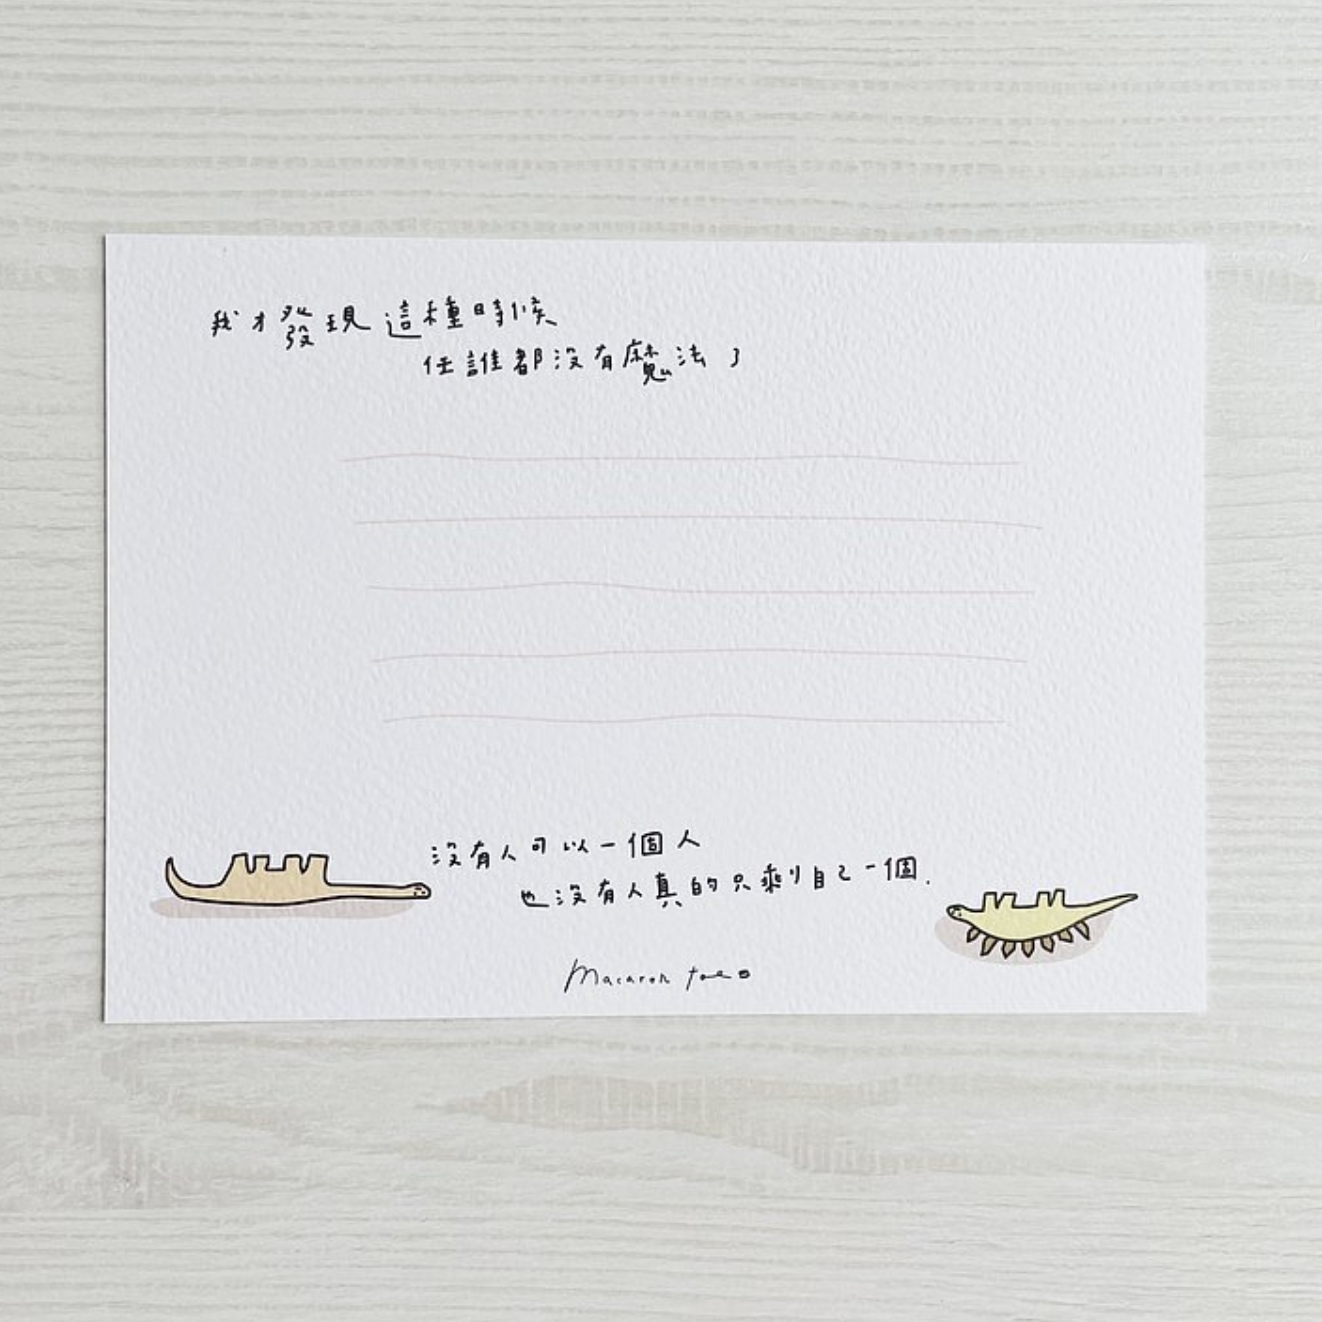 我才發現這種時候
任誰都沒有魔法了
沒有人可以一個人
也沒有人真的只剩自己一個.
Macaron toe